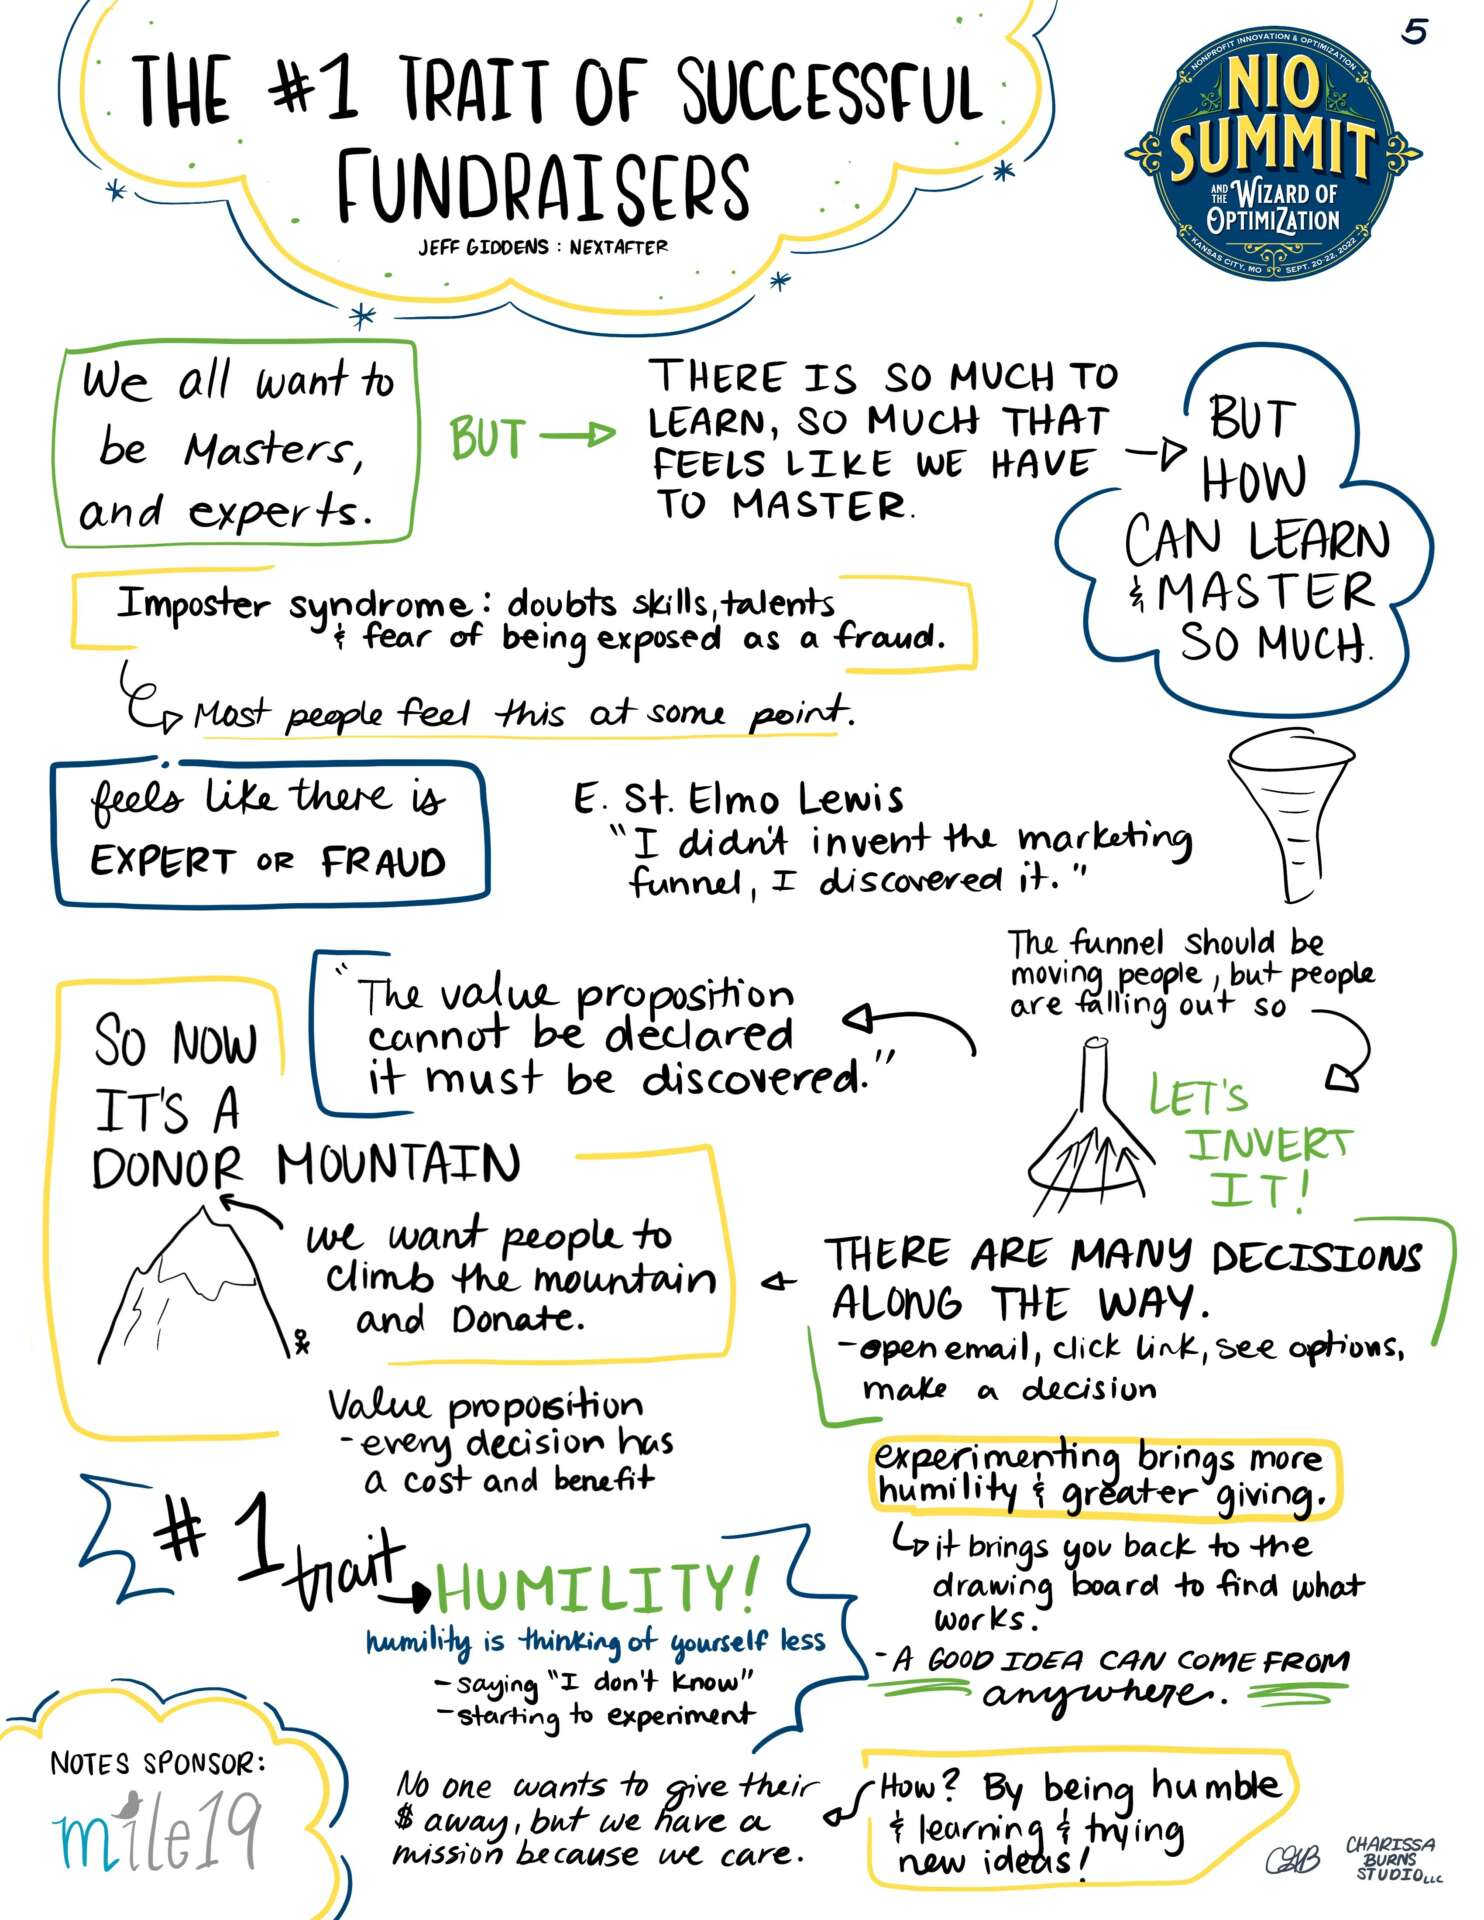 THE #1 TRAIT OF SUCCESSFUL
FUNDRAISERS
JEFF GIDDENS : NEXTAFTER
5
NONPROFIT INNOVATION & OPTIMIZATION
NIO
SUMMIT
AND THE WIZARD OF
OPTIMIZATION
KANSAS CITY, MO
SEPT. 20-22, 2022
We all want to
be Masters,
and experts.
BUT
THERE IS SO MUCH TO
LEARN, SO MUCH THAT
FEELS LIKE WE HAVE
TO MASTER.
BUT
HOW
CAN LEARN
& MASTER
SO MUCH.
Imposter syndrome: doubts skills, talents
& fear of being exposed as a fraud.
Most people feel this at some point.
feels like there is
EXPERT OR FRAUD
E. St. Elmo Lewis
"I didn't invent the marketing
funnel, I discovered it."
The funnel should be
moving people, but people
are falling out so
LET'S
INVERT
IT!
"The value proposition
cannot be declared
it must be discovered."
SO NOW
IT'S A
DONOR MOUNTAIN
we want people to
climb the mountain
and Donate.
THERE ARE MANY DECISIONS
ALONG THE WAY.
- open email, click link, see options,
make a decision
Value proposition
- every decision has
a cost and benefit
experimenting brings more
humility & greater giving.
it brings you back to the
drawing board to find what
works.
- A GOOD IDEA CAN COME FROM
anywhere.
#1 trait
HUMILITY!
humility is thinking of yourself less
- saying "I don't know"
- starting to experiment
How? By being humble
& learning & trying
new ideas!
No one wants to give their
$ away, but we have a
mission because we care.
NOTES SPONSOR:
mile19
CHARISSA
BURNS
STUDIO LLC